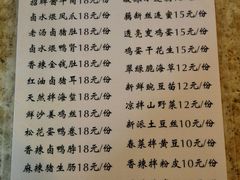 招牌酱牛肉18元/份
卤水煨凤爪18元/份
老汤卤猪肚18元/份
卤水煨鸭胗18元/份
香辣金钱肚18元/份
红油卤猪耳18元/份
天然拌海蜇18元/份
鲜沙姜鸡丝18元/份
松花蛋鸭卷18元/份
香辣卤鸭脖18元/份
麻辣猪生肠18元/份
12元/份
15元/份
15元/份
鸡蛋干花生15元/份
翠绿脆海草12元/份
新鲜豌豆苗12元/份
凉拌山野菜12元/份
新派土豆丝10元/份
春菜拌黄豆10元/份
香辣拌粉皮10元/份